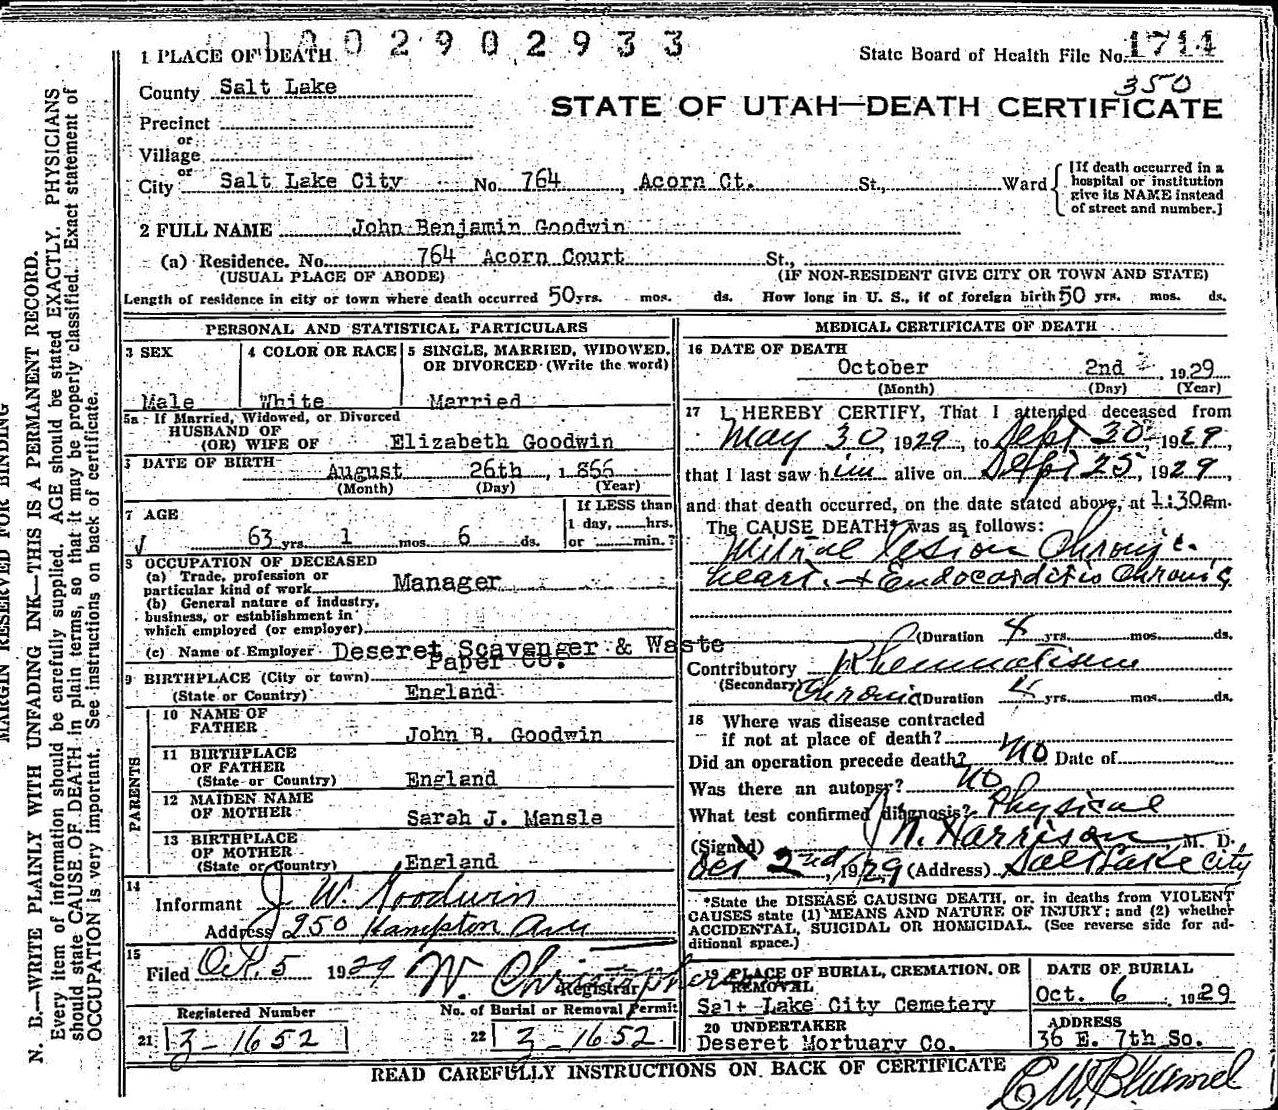 1002902933
1 PLACE OF DEATH
State Board of Health File No. 1714
350
County Salt Lake
STATE OF UTAH—DEATH CERTIFICATE
Precinct
or
Village
or
City Salt Lake City No. 764, Acorn Ct. St., Ward
[If death occurred in a
hospital or institution
give its NAME instead
of street and number.]
2 FULL NAME John Benjamin Goodwin
(a) Residence. No. 764 Acorn Court St.,
(USUAL PLACE OF ABODE) (IF NON-RESIDENT GIVE CITY OR TOWN AND STATE)
Length of residence in city or town where death occurred 50 yrs. mos. ds. How long in U. S., if of foreign birth 50 yrs. mos. ds.
PERSONAL AND STATISTICAL PARTICULARS
3 SEX
Male
4 COLOR OR RACE
White
5 SINGLE, MARRIED, WIDOWED,
OR DIVORCED (Write the word)
Married
5a If Married, Widowed, or Divorced
HUSBAND OF
(OR) WIFE OF Elizabeth Goodwin
6 DATE OF BIRTH
August 26th, 1866
(Month) (Day) (Year)
7 AGE
63 yrs. 1 mos. 6 ds.
If LESS than
1 day, hrs.
or min.?
8 OCCUPATION OF DECEASED
(a) Trade, profession or
particular kind of work Manager
(b) General nature of industry,
business, or establishment in
which employed (or employer)
(c) Name of Employer Deseret Scavenger & Waste
Paper Co.
9 BIRTHPLACE (City or town)
(State or Country) England
PARENTS
10 NAME OF
FATHER John B. Goodwin
11 BIRTHPLACE
OF FATHER
(State or Country) England
12 MAIDEN NAME
OF MOTHER Sarah J. Mansle
13 BIRTHPLACE
OF MOTHER
(State or Country) England
14
Informant J. W. Goodwin
Address 250 Hampton Ave
15
Filed Oct. 5 1929 W. Christopherson
Registrar
Registered Number No. of Burial or Removal Permit
21 3-1652 22 3-1652
MEDICAL CERTIFICATE OF DEATH
16 DATE OF DEATH
October 2nd, 1929
(Month) (Day) (Year)
17 I HEREBY CERTIFY, That I attended deceased from
May 30, 1929, to Sept 30, 1929,
that I last saw him alive on Sept 25, 1929,
and that death occurred, on the date stated above, at 1:30am.
The CAUSE DEATH* was as follows:
Mitral lesion Chronic.
heart. + Endocarditis Chronic
(Duration 4 yrs. mos. ds.
Contributory Rheumatism
(Secondary) Chronic (Duration 4 yrs. mos. ds.
18 Where was disease contracted
if not at place of death?
Did an operation precede death? no Date of
Was there an autopsy? no
What test confirmed diagnosis? Physical
(Signed) J N. Harrison M. D.
Oct 2nd, 1929 (Address) Salt Lake City
*State the DISEASE CAUSING DEATH, or, in deaths from VIOLENT
CAUSES state (1) MEANS AND NATURE OF INJURY; and (2) whether
ACCIDENTAL, SUICIDAL OR HOMICIDAL. (See reverse side for ad-
ditional space.)
19 PLACE OF BURIAL, CREMATION, OR
REMOVAL
Salt Lake City Cemetery
DATE OF BURIAL
Oct. 6, 1929
20 UNDERTAKER
Deseret Mortuary Co.
ADDRESS
36 E. 7th So.
READ CAREFULLY INSTRUCTIONS ON BACK OF CERTIFICATE
MARGIN RESERVED FOR BINDING
N. B.—WRITE PLAINLY WITH UNFADING INK—THIS IS A PERMANENT RECORD.
Every item of information should be carefully supplied. AGE should be stated EXACTLY. PHYSICIANS
should state CAUSE OF DEATH in plain terms, so that it may be properly classified. Exact statement of
OCCUPATION is very important. See instructions on back of certificate.